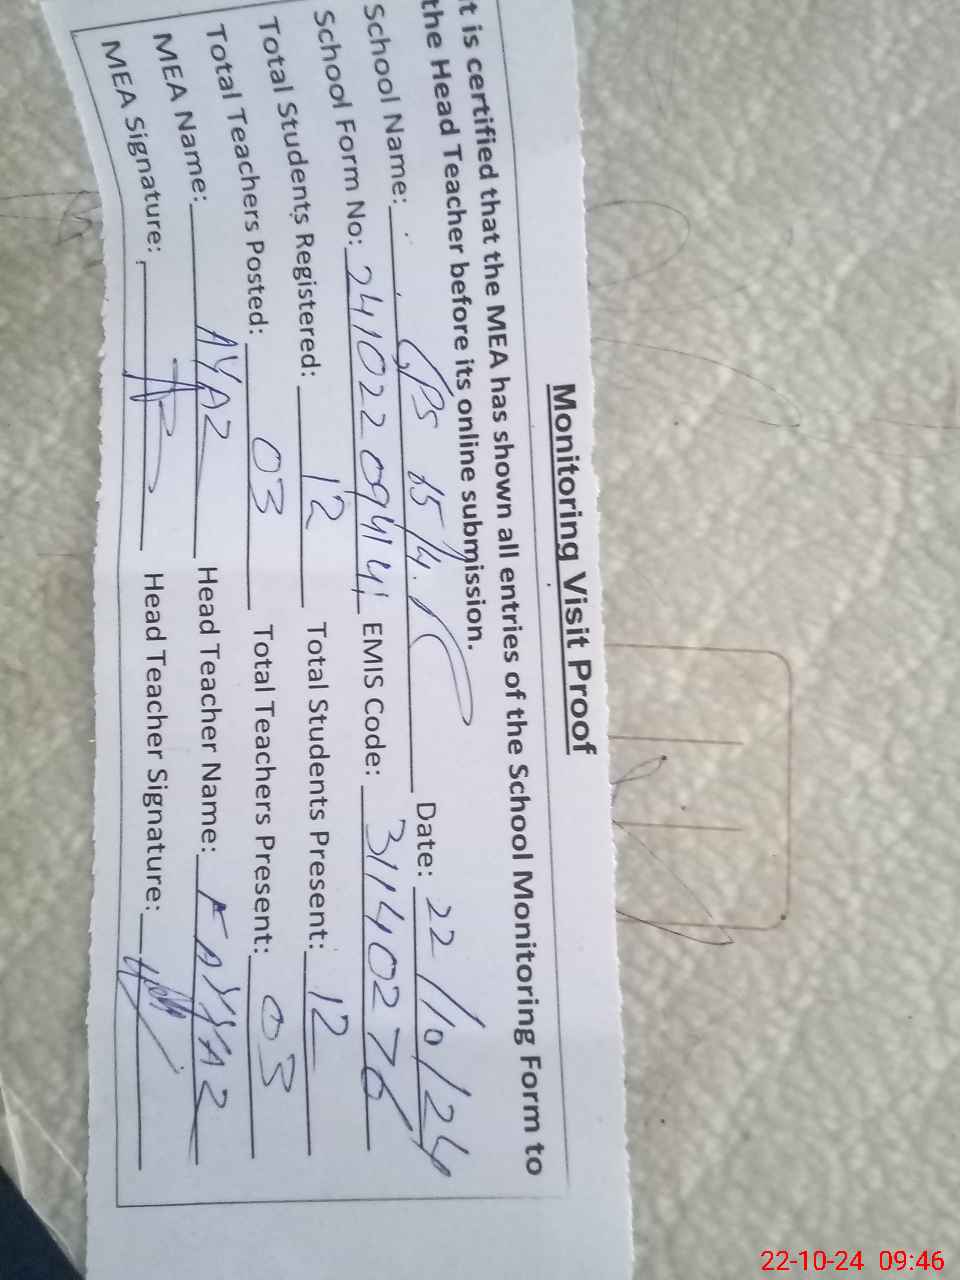 Monitoring Visit Proof
It is certified that the MEA has shown all entries of the School Monitoring Form to
the Head Teacher before its online submission.
School Name: GPS 15/4.R Date: 22/10/24
School Form No: 24102209414 EMIS Code: 31140276
Total Students Registered: 12 Total Students Present: 12
Total Teachers Posted: 03 Total Teachers Present: 03
MEA Name: AYAZ Head Teacher Name: FAYYAZ
MEA Signature: Head Teacher Signature:
22-10-24 09:46